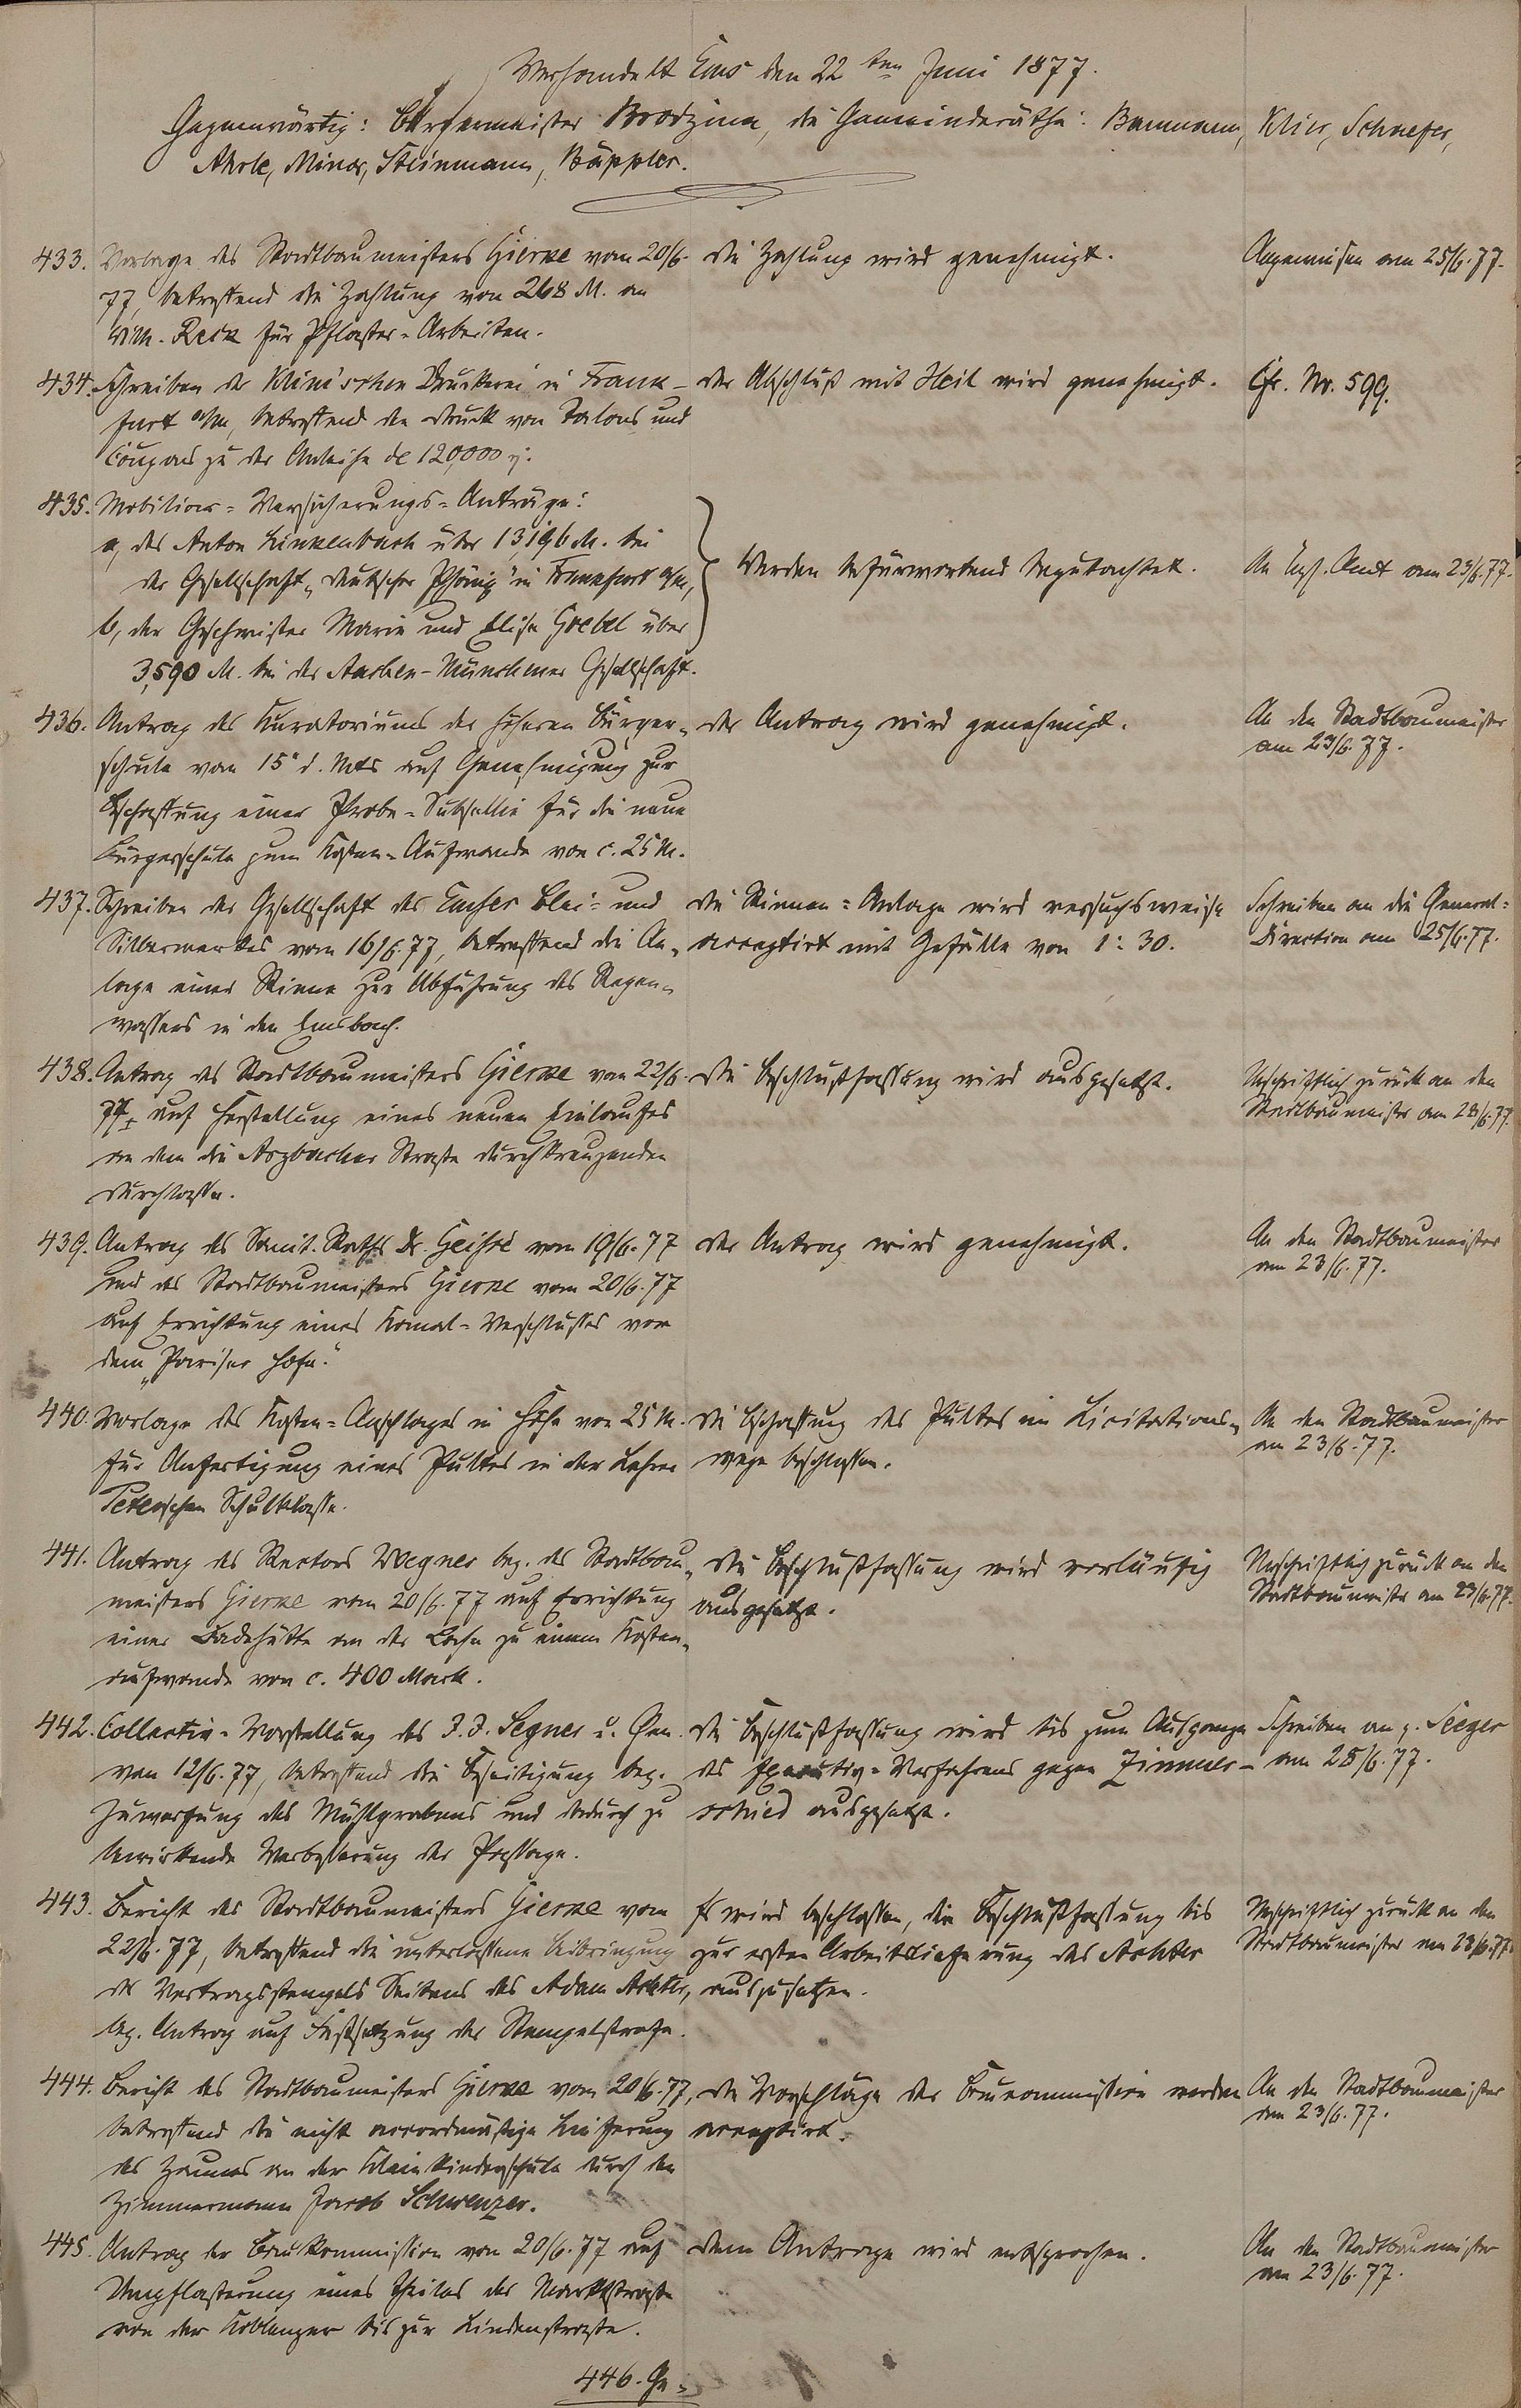 Verhandelt Ems den 22ten Juni 1877.
Gegenwärtig: Bürgermeister Brodzina, die Gemeinderäthe: Baumann, Klier, Schaefer,
Ahrle, Minor, Steinmann, Bäppler.
433. Vorlage des Stadtbaumeisters Gierke vom 20/6.
77, betreffend die Zahlung von 268 M. an
Wilh. Reck für Pflaster-Arbeiten.
Die Zahlung wird genehmigt.
Angewiesen am 25/6.77.
434. Schreiben der Klim'schen Druckerei in Frank-
furt a/m, betreffend den Druck von Talons und
Coupons zu der Anleihe de 120,000
Der Abschluß mit Heil wird genehmigt.
Cfr. Nr. 599.
435. Mobiliar-Versicherungs-Anträge:
a, des Anton Linkenbach über 13,196 M. bei
der Gesellschaft „Deutscher Phönix" in Frankfurt a/m,
b, der Geschwister Marie und Elise Goebel über
3,590 M. bei der Aachen-Münchener Gesellschaft.
Werden befürwortend begutachtet.
An Kgl. Amt am 23/6.77.
436. Antrag des Kuratoriums der höheren Bürger-
schule vom 15" d. Mts auf Genehmigung zur
Beschaffung einer Probe-Subsellie für die neue
Bürgerschule zum Kosten-Aufwande von c. 25 M.
Der Antrag wird genehmigt.
An den Stadtbaumeister
am 23/6.77.
437. Schreiben der Gesellschaft des Emser Blei- und
Silberwerkes vom 16/6.77, betreffend die An-
lage einer Rinne zur Abführung des Regen-
wassers in den Emsbach.
Die Rinnen-Anlage wird versuchsweise
acceptirt mit Gefälle von 1:30.
Schreiben an die General-
Direction am 25/6.77.
438. Antrag des Stadtbaumeisters Gierke vom 22/6.
77, auf Herstellung eines neuen Einlaufes
an dem die Arzbacher Straße durchkreuzenden
Durchlasse.
Die Beschlußfassung wird ausgesetzt.
Urschriftlich zurück an den
Stadtbaumeister am 23/6.77.
439. Antrag des Sanit. Raths Dr. Geisse vom 19/6.77
und des Stadtbaumeisters Gierke vom 20/6.77
auf Errichtung eines Kanal-Verschlusses vor
dem „Pariser Hofe."
Der Antrag wird genehmigt.
An den Stadtbaumeister
am 23/6.77.
440. Vorlage des Kosten-Anschlages in Höhe von 25 M.
für Anfertigung eines Pultes in der Lehrer
Peter'schen Schulklasse.
Die Beschaffung des Pultes im Licitations-
wege beschlossen.
An den Stadtbaumeister
am 23/6.77.
441. Antrag des Rectors Wegner bez. des Stadtbau-
meisters Gierke vom 20/6.77 auf Errichtung
einer Badehütte an der Lahn zu einem Kosten-
aufwande von c. 400 Mark.
Die Beschlußfassung wird vorläufig
ausgesetzt.
Urschriftlich zurück an den
Stadtbaumeister am 23/6.77.
442. Collectiv-Vorstellung des J. J. Segner u. Gen.
vom 12/6.77, betreffend die Beseitigung bez.
Zuwerfung des Mühlgrabens und dadurch zu
bewirkende Verbesserung der Passage.
Die Beschlußfassung wird bis zum Ausgange
des Executiv-Verfahrens gegen Zimmer-
schied ausgesetzt.
Schreiben an p. Seeger
am 28/6.77.
443. Bericht des Stadtbaumeisters Gierke vom
22/6.77, betreffend die unterlassene Beibringung
des Vertragsstempels Seitens des Adam Achter,
bez. Antrag auf Festsetzung der Stempelstrafe.
Es wird beschlossen, die Beschlußfassung bis
zur ersten Arbeitslieferung des Achter
auszusetzen.
Urschriftlich zurück an den
Stadtbaumeister am 23/6.77.
444. Bericht des Stadtbaumeisters Gierke vom 20/6.77,
betreffend die nicht accordmäßige Lieferung
des Zaunes an der Kleinkinderschule durch den
Zimmermann Jacob Schwenzer.
Die Vorschläge der Baucommission werden
acceptirt.
An den Stadtbaumeister
am 23/6.77.
445. Antrag der Baukommission vom 20/6.77 auf
Umpflasterung eines Theiles der Marktstraße
von der Koblenzer bis zur Lindenstraße.
Dem Antrage wird entsprochen.
An den Stadtbaumeister
am 23/6.77.
446. Ge-